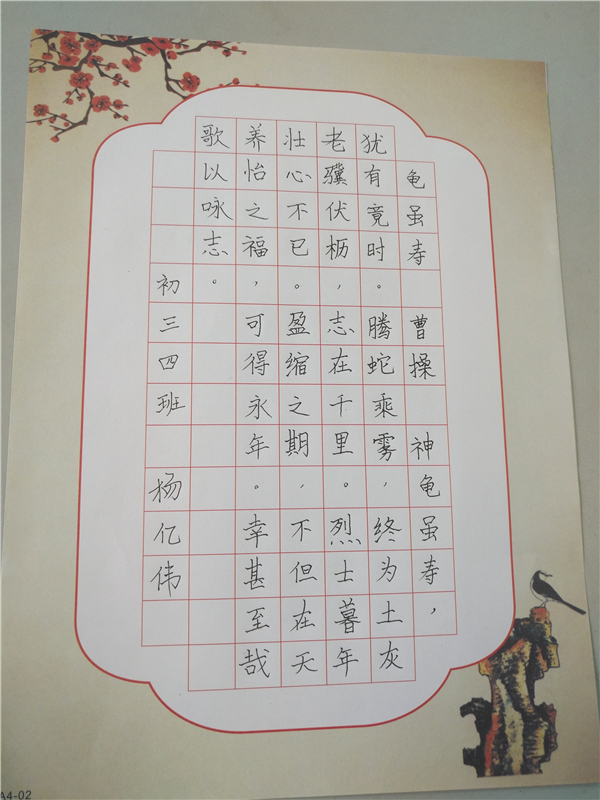 龟虽寿 曹操 神龟虽寿，
犹有竟时。腾蛇乘雾，终为土灰
老骥伏枥，志在千里。烈士暮年
壮心不已。盈缩之期，不但在天
养怡之福，可得永年。幸甚至哉
歌以咏志。
初三四班 杨亿伟
A4-02